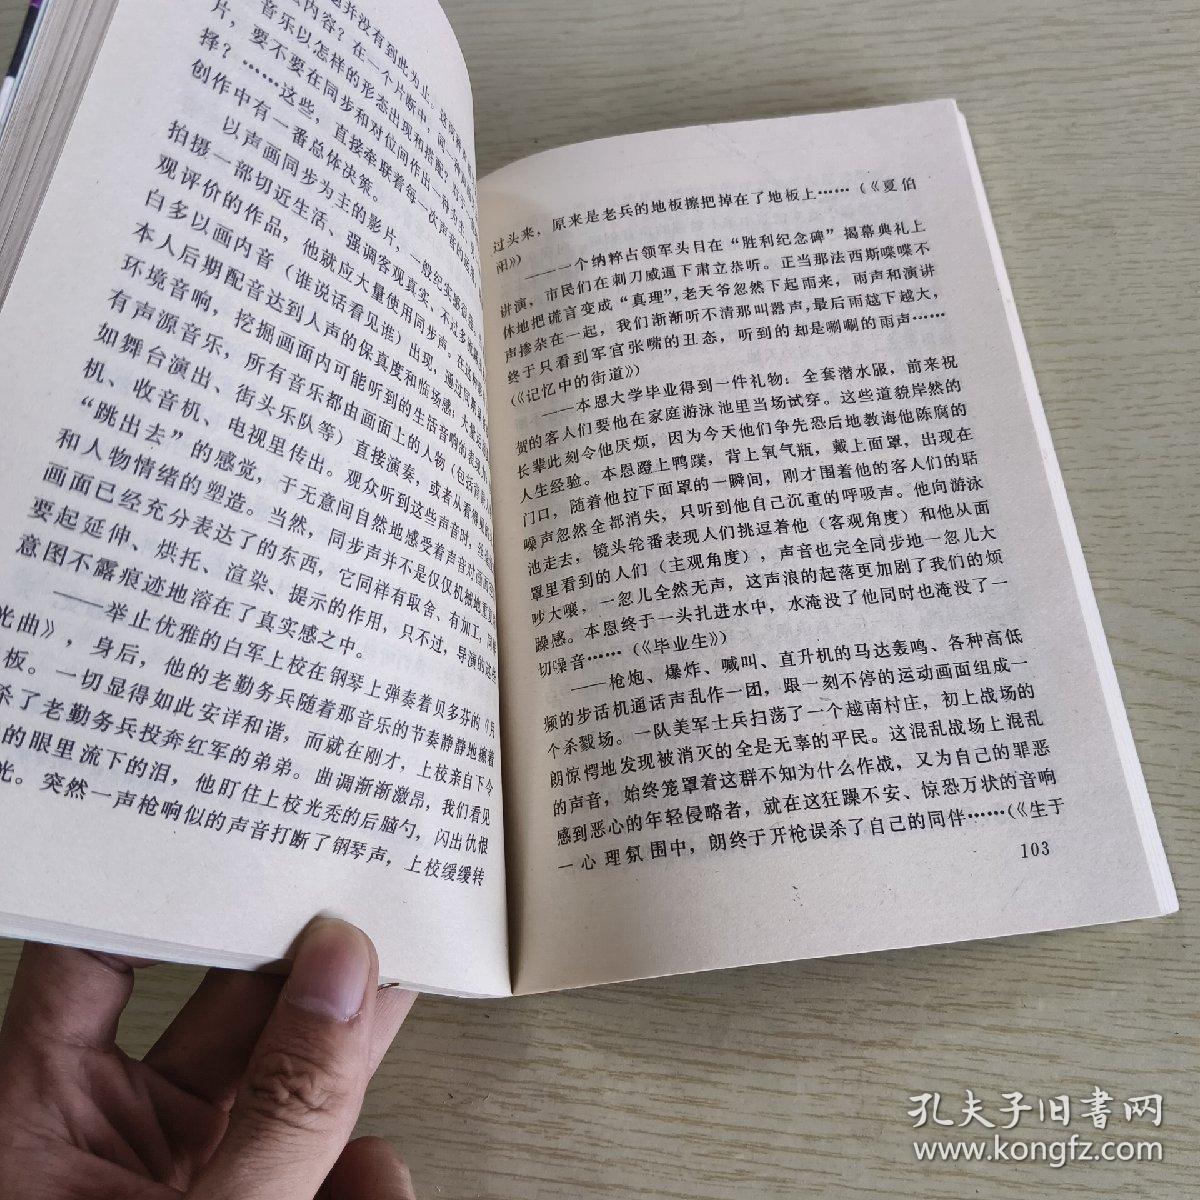 题并没有到此为止。
内容？在一个片断中，同一种
音乐以怎样的形态出现和搭配？
片，要不要在同步和对位间作出一种
择？……这些，直接牵联着每一次声音的
创作中有一番总体决策。
以声画同步为主的影片，一般纪实
拍摄一部切近生活、强调客观真实、不过多
观评价的作品，他就应大量使用同步声。在这种
白多以画内音（谁说话看见谁）出现，通过同期录
本人后期配音达到人声的保真度和临场感；大量运
环境音响，挖掘画面内可能听到的生活音响的表现
有声源音乐，所有音乐都由画面上的人物（包括
如舞台演出、街头乐队等）直接演奏，或者从看得见的
机、收音机、电视里传出。观众听到这些声音时，
“跳出去”的感觉，于无意间自然地感受着声音对
和人物情绪的塑造。当然，同步声并不是仅仅机械地重复
画面已经充分表达了的东西，它同样有取舍、有加工，同样
要起延伸、烘托、渲染、提示的作用，只不过，导演的这些
意图不露痕迹地溶在了真实感之中。
——举止优雅的白军上校在钢琴上弹奏着贝多芬的《月
光曲》，身后，他的老勤务兵随着那音乐的节奏静静地擦着
板。一切显得如此安详和谐，而就在刚才，上校亲自下令
杀了老勤务兵投奔红军的弟弟。曲调渐渐激昂，我们看见
的眼里流下的泪，他盯住上校光秃的后脑勺，闪出仇恨
光。突然一声枪响似的声音打断了钢琴声，上校缓缓转
过头来，原来是老兵的地板擦把掉在了地板上……（《夏伯
阳》）
——一个纳粹占领军头目在“胜利纪念碑”揭幕典礼上
讲演，市民们在刺刀威逼下肃立恭听。正当那法西斯喋喋不
休地把谎言变成“真理”，老天爷忽然下起雨来，雨声和演讲
声掺杂在一起，我们渐渐听不清那叫嚣声，最后雨越下越大，
终于只看到军官张嘴的丑态，听到的却是唰唰的雨声……
（《记忆中的街道》）
——本恩大学毕业得到一件礼物：全套潜水服，前来祝
贺的客人们要他在家庭游泳池里当场试穿。这些道貌岸然的
长辈此刻令他厌烦，因为今天他们争先恐后地教诲他陈腐的
人生经验。本恩蹬上鸭蹼，背上氧气瓶，戴上面罩，出现在
门口，随着他拉下面罩的一瞬间，刚才围着他的客人们的聒
噪声忽然全部消失，只听到他自己沉重的呼吸声。他向游泳
池走去，镜头轮番表现人们挑逗着他（客观角度）和他从面
罩里看到的人们（主观角度），声音也完全同步地一忽儿大
吵大嚷，一忽儿全然无声，这声浪的起落更加剧了我们的烦
躁感。本恩终于一头扎进水中，水淹没了他同时也淹没了一
切噪音……（《毕业生》）
——枪炮、爆炸、喊叫、直升机的马达轰鸣、各种高低
频的步话机通话声乱作一团，跟一刻不停的运动画面组成一
个杀戮场。一队美军士兵扫荡了一个越南村庄，初上战场的
朗惊愕地发现被消灭的全是无辜的平民。这混乱战场上混乱
的声音，始终笼罩着这群不知为什么作战，又为自己的罪恶
感到恶心的年轻侵略者，就在这狂躁不安、惊恐万状的音响
一心理氛围中，朗终于开枪误杀了自己的同伴……（《生于
103
孔夫子旧书网
www.kongfz.com